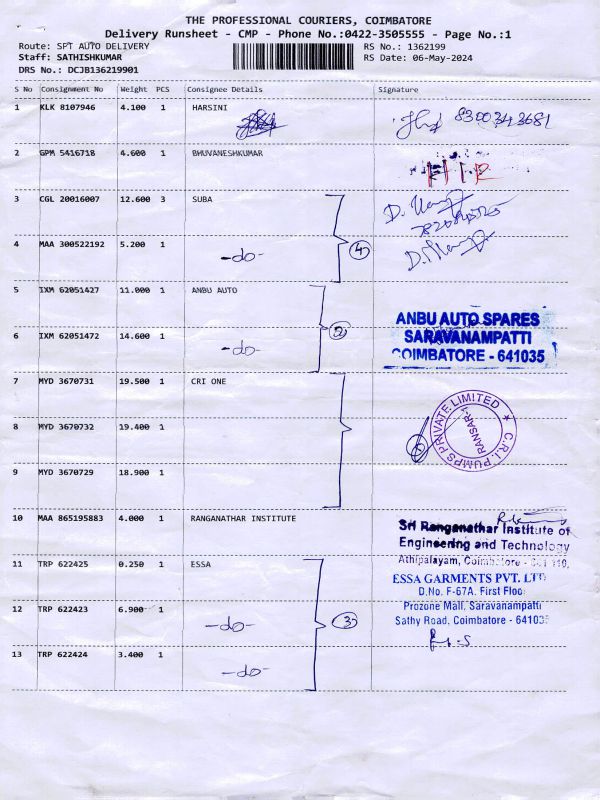 THE PROFESSIONAL COURIERS, COIMBATORE
Delivery Runsheet - CMP - Phone No.:0422-3505555 - Page No.:1
Route: SPT AUTO DELIVERY
RS No.: 1362199
Staff: SATHISHKUMAR
RS Date: 06-May-2024
DRS No.: DCJB136219901
S No Consignment No Weight PCS Consignee Details Signature
1 KLK 8107946 4.100 1 HARSINI
8300343681
2 GPM 5416718 4.600 1 BHUVANESHKUMAR
3 CGL 20016007 12.600 3 SUBA
4 MAA 300522192 5.200 1 -do-
4
5 IXM 62051427 11.000 1 ANBU AUTO
ANBU AUTO SPARES
SARAVANAMPATTI
COIMBATORE - 641035
6 IXM 62051472 14.600 1 -do-
2
7 MYD 3670731 19.500 1 CRI ONE
C.R.I. PUMPS PRIVATE LIMITED
8 MYD 3670732 19.400 1
9 MYD 3670729 18.900 1
10 MAA 865195883 4.000 1 RANGANATHAR INSTITUTE
Sri Ranganathar Institute of
Engineering and Technology
Athipalayam, Coimbatore
11 TRP 622425 0.250 1 ESSA
ESSA GARMENTS PVT. LTD
D.No. F-67A. First Floo
Prozone Mall, Saravanampatti
Sathy Road, Coimbatore - 641035
12 TRP 622423 6.900 1 -do-
3
13 TRP 622424 3.400 1 -do-